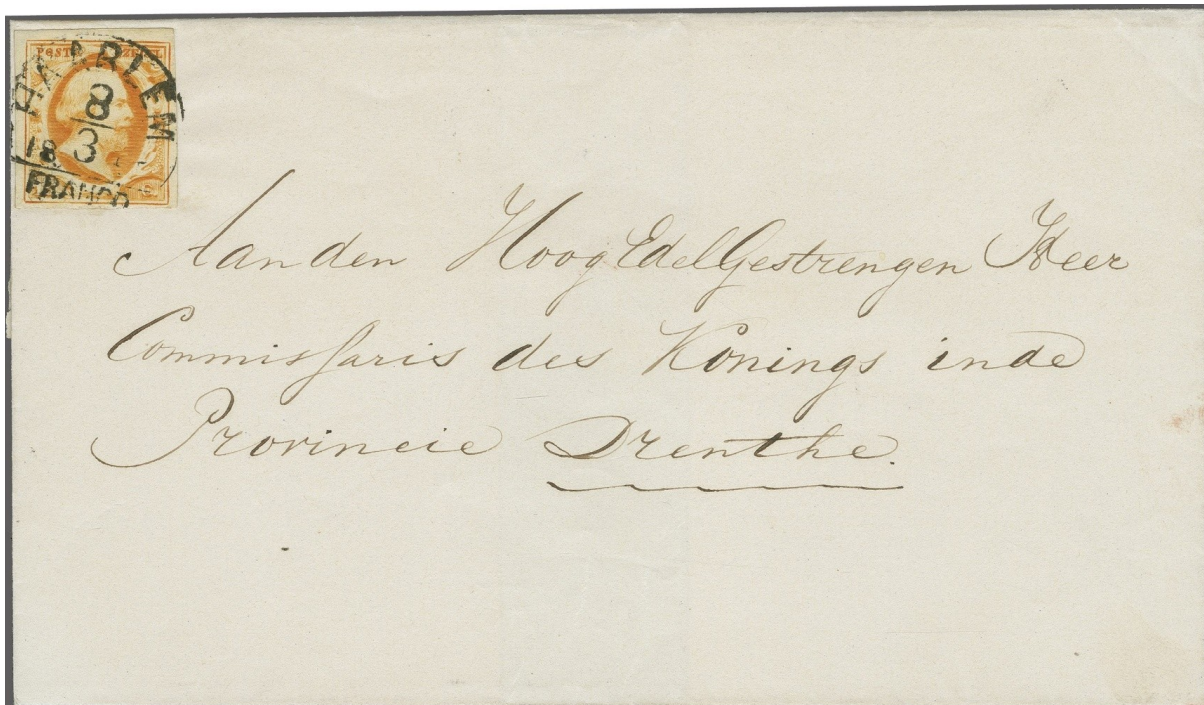 POSTZEGEL
HAARLEM
8
3
18
FRANCO
Aan den HoogEdelGestrengen Heer
Commissaris des Konings in de
Provincie Drenthe.